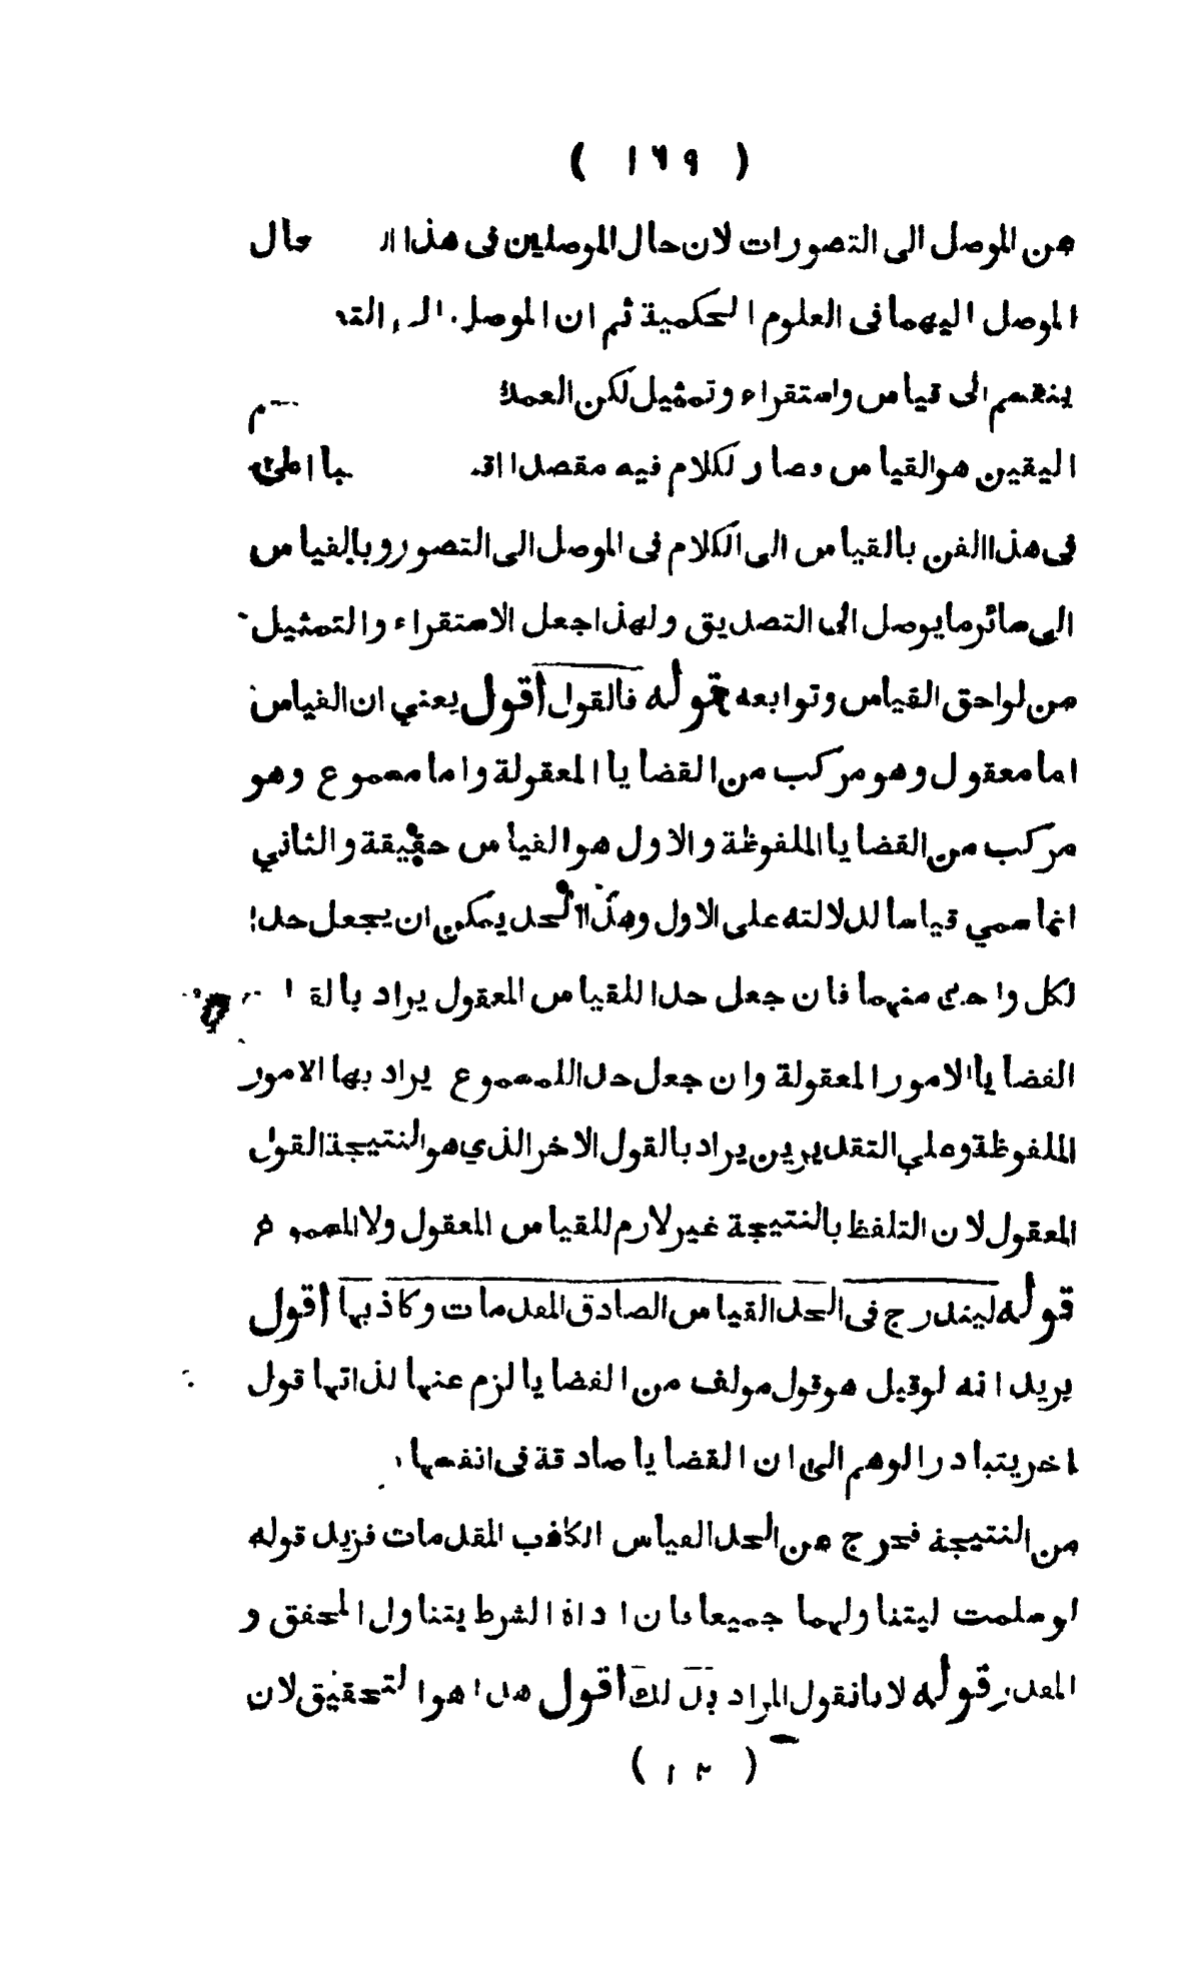 ( ١٦٩ )
من الموصل الى التصورات لان حال الموصلين فى هذا حال
الموصل اليهما فى العلوم الحكمية ثم ان الموصل
ينقسم الى قياس واستقراء وتمثيل لكن
اليقين هو القياس وصار لكلام فيه مقصدا
فى هذا الفن بالقياس الى الكلام فى الموصل الى التصور وبالقياس
الى سائر ما يوصل الى التصديق ولهذا جعل الاستقراء والتمثيل
من لواحق القياس وتوابعه قوله فالقول اقول يعني ان القياس
اما معقول وهو مركب من القضايا المعقولة واما مسموع وهو
مركب من القضايا الملفوظة والاول هو القياس حقيقة والثاني
انما سمي قياسا لدلالته على الاول وهذا الحد يمكن ان يجعل حدا
لكل واحد منهما فان جعل حدا للقياس المعقول يراد
القضايا الامور المعقولة وان جعل حدا للمسموع يراد بها الامور
الملفوظة وعلي التقديرين يراد بالقول الاخر الذي هو النتيجة القول
المعقول لان التلفظ بالنتيجة غير لازم للقياس المعقول ولا المسموع
قوله ليندرج فى الحد القياس الصادق المقدمات وكاذبها اقول
يريد انه لو قيل هو قول مولف من القضايا لزم عنها لذاتها قول
اخر يتبادر الوهم الى ان القضايا صادقة فى انفسها
من النتيجة فخرج من الحد القياس الكاذب المقدمات فزيد قوله
لو سلمت ليتناولهما جميعا فان اداة الشرط يتناول المحقق و
المقدر قوله لانا نقول المراد بذلك اقول هذا هو التحقيق لان